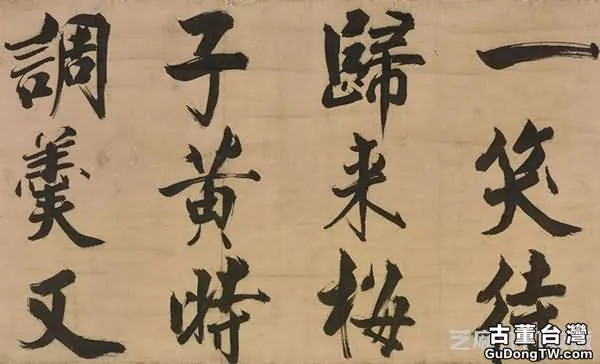 一笑待
歸来梅
子黄時
調羹又
古董台灣
GuDongTW.com